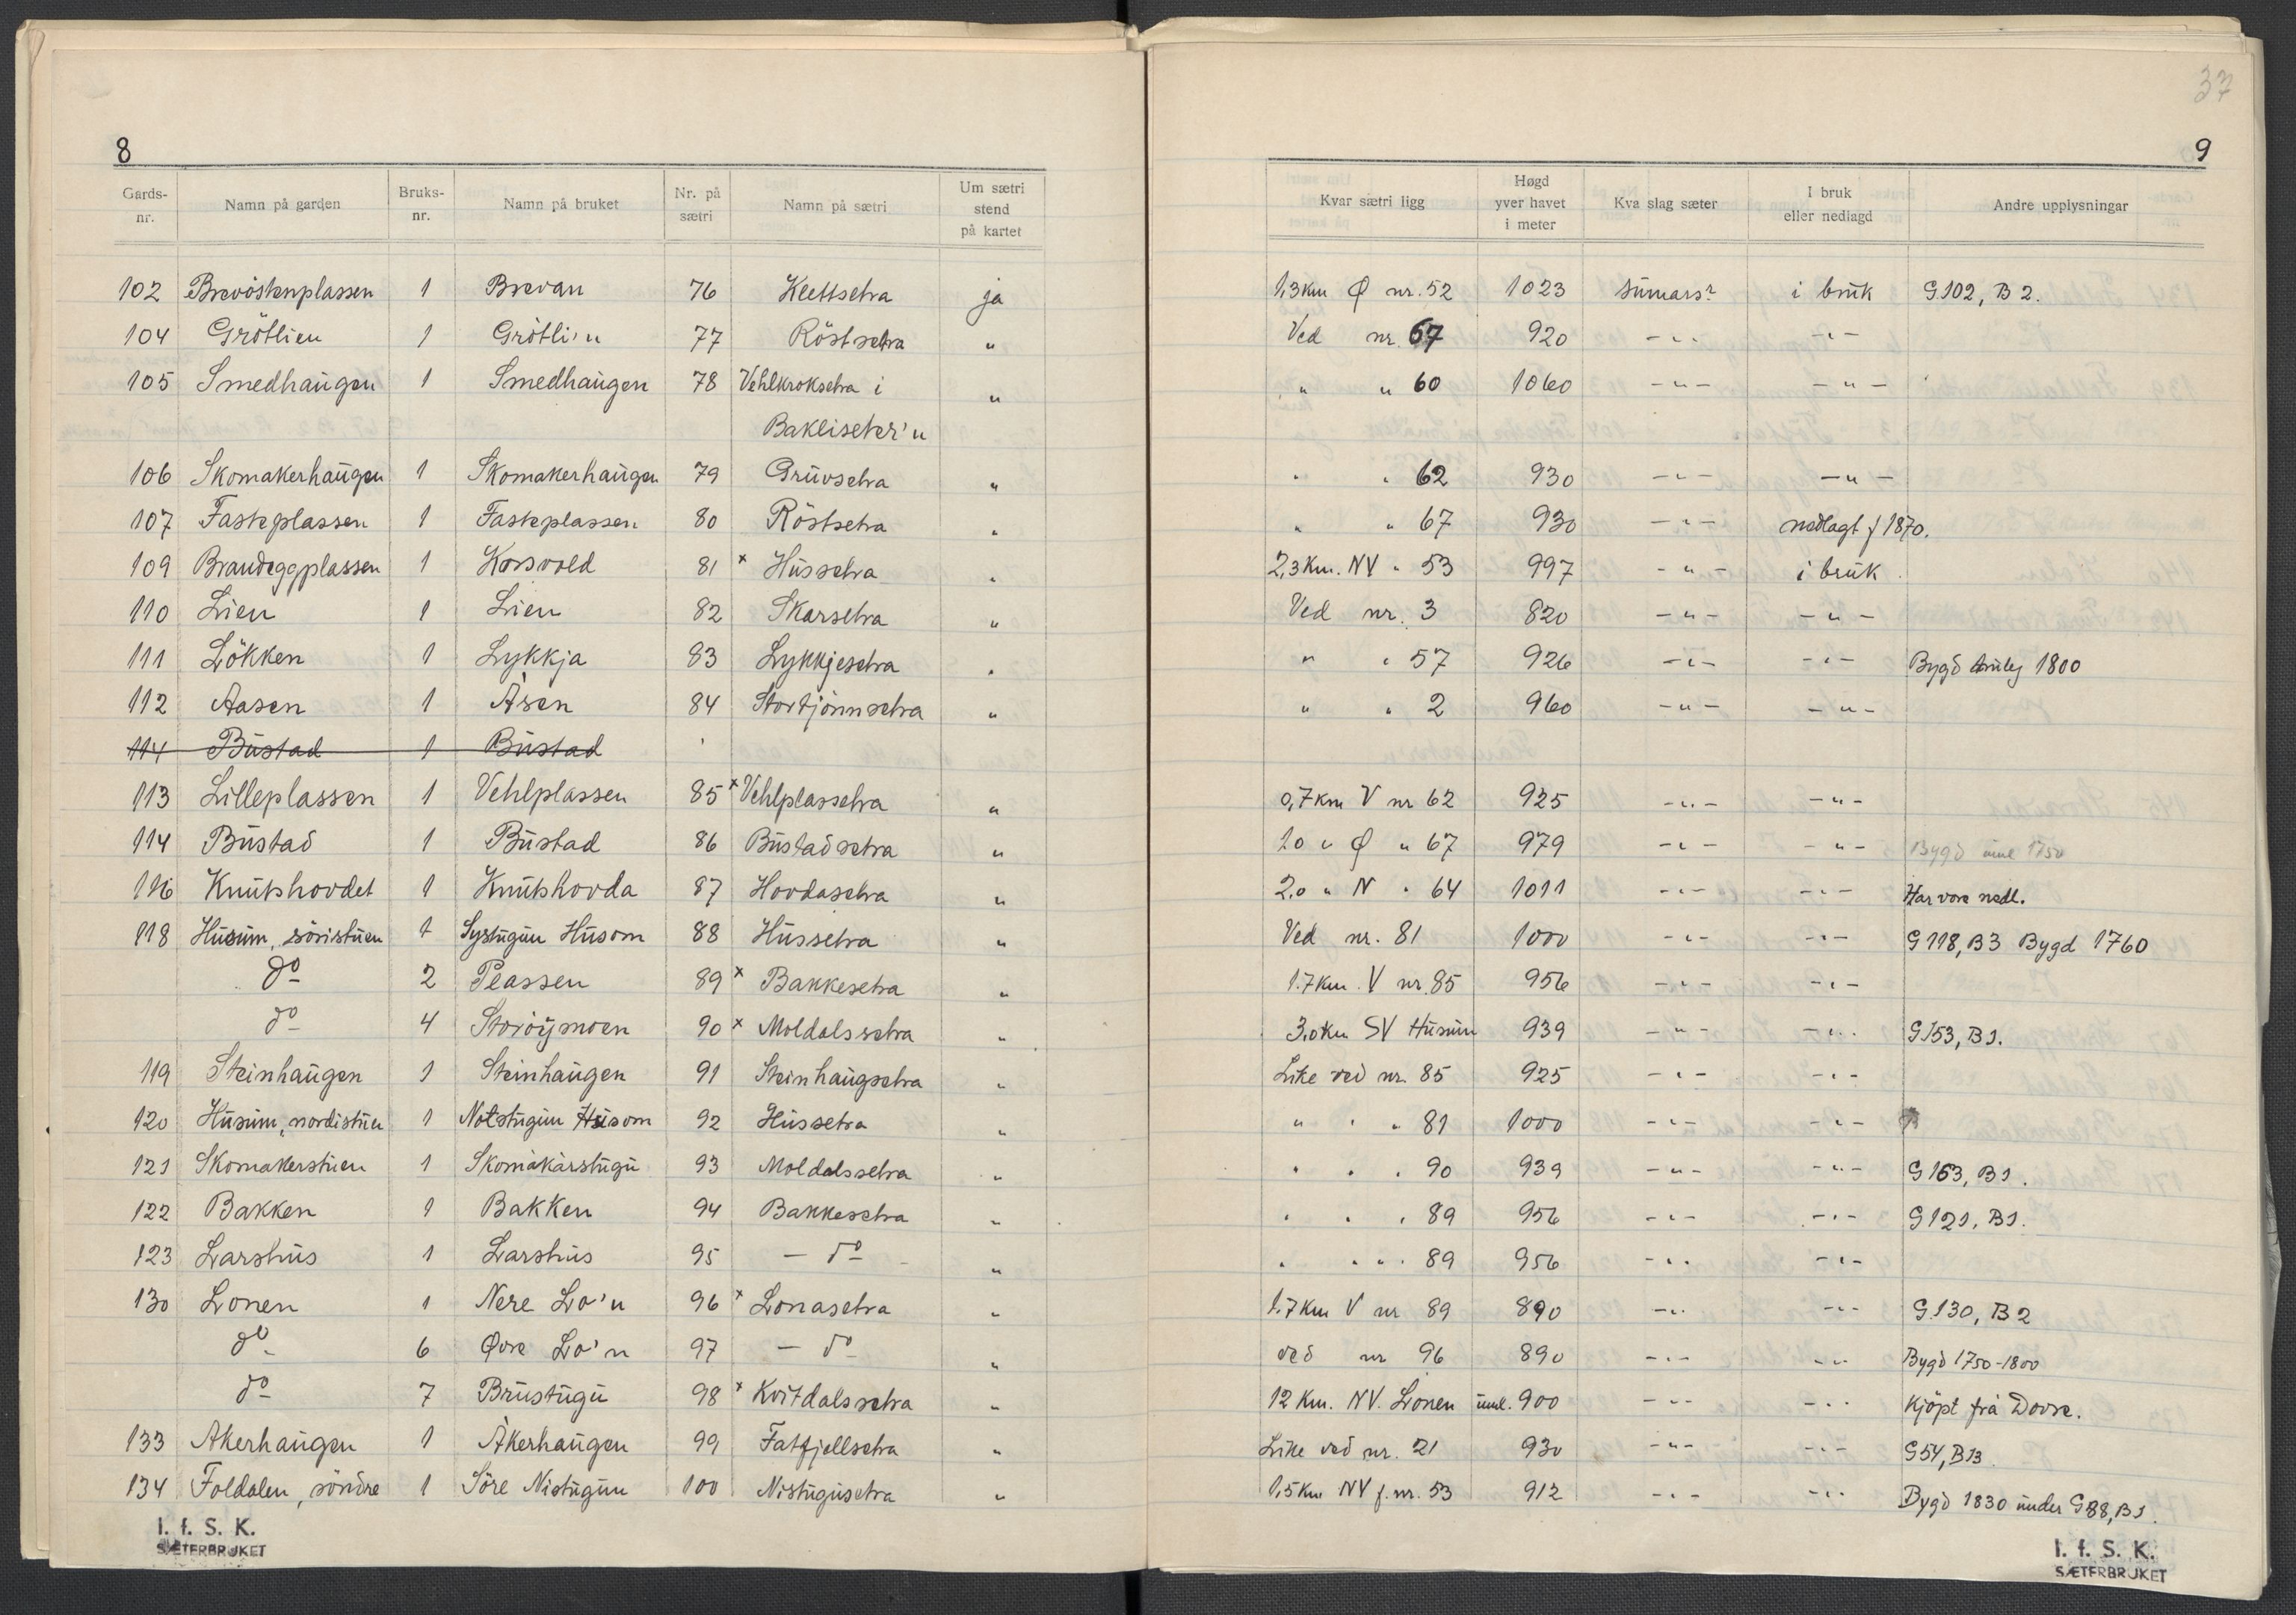 37
8
9
Gards-nr. Namn på garden Bruks-nr. Namn på bruket Nr. på sætri Namn på sætri Um sætri stend på kartet Kvar sætri ligg Høgd yver havet i meter Kva slag sæter I bruk eller nedlagd Andre upplysningar
102 Brevöstenplassen 1 Brevan 76 Klettsetra ja 1,3 km Ø nr. 52 1023 sumarsr i bruk G 102, B 2.
104 Grötlien 1 Grötli'n 77 Röstsetra " Ved nr. 67 920 -"- -"-
105 Smedhaugen 1 Smedhaugen 78 Vehlkroksetra i " " " 60 1060 -"- -"-
Bakliseter'n
106 Skomakerhaugen 1 Skomakerhaugen 79 Gruvsetra " " " 62 930 -"- -"-
107 Fasteplassen 1 Fasteplassen 80 Röstsetra " " " 67 930 -"- nedlagt f 1870.
109 Brandeggplassen 1 Korsvold 81 x Hussetra " 2,3 km. NV " 53 997 -"- i bruk
110 Lien 1 Lien 82 Skarsetra " Ved nr. 3 820 -"- -"-
111 Lökken 1 Lykkja 83 Lykkjesetra " " " 57 926 -"- -"- Bygd 1800
112 Aasen 1 Åsen 84 Stortjönnsetra " " " 2 960 -"- -"-
114 Bustad 1 Bustad
113 Lilleplassen 1 Vehlplassen 85 x Vehlplassetra " 0,7 km V nr 62 925 -"- -"-
114 Bustad 1 Bustad 86 Bustadsetra " 2.0 " Ø " 67 979 -"- -"- Bygd uml 1750
116 Knutshovdet 1 Knutshovda 87 Hovdasetra " 2.0 " N " 64 1011 -"- -"- Har vore nedl.
118 Husum, söristuen 1 Systugun Husom 88 Hussetra " Ved nr. 81 1000 -"- -"- G 118, B3 Bygd 1760
do 2 Plassen 89 x Bakkesetra " 1.7 km. V nr. 85 956 -"- -"-
do 4 Storöymoen 90 x Moldalssetra " 3,0 km SV Husum 939 -"- -"- G 153, B 1.
119 Steinhaugen 1 Steinhaugen 91 Steinhaugsetra " Like ved nr. 85 925 -"- -"-
120 Husum, nordistuen 1 Notstugun Husom 92 Hussetra " " " " 81 1000 -"- -"-
121 Skomakerstuen 1 Skomakarstugu 93 Moldalssetra " " " " 90 939 -"- -"- G 163, B 1.
122 Bakken 1 Bakken 94 Bakkesetra " " " " 89 956 -"- -"- G 121, B 1.
123 Larshus 1 Larshus 95 - do - " " " " 89 956 -"- -"-
130 Lonen 1 Nere Lo'n 96 x Lonasetra " 1.7 km V nr 89 890 -"- -"- G 130, B 2
do 6 Øvre Lo'n 97 - do " ved nr 96 890 -"- -"- Bygd 1750-1800
do 7 Brustugu 98 x Kvitdalssetra " 12 km. NV. Lonen uml. 900 -"- -"- Kjöpt frå Dovre.
133 Akerhaugen 1 Åkerhaugen 99 Fatfjellsetra " Like ved nr. 21 930 -"- -"- G 54, B 13.
134 Foldalen, söndre 1 Söre Nistugun 100 Nistugusetra " 1,5 km NV f. nr. 53 912 -"- -"- Bygd 1830 under G 88, B 1.
I. f. S. K.
SÆTERBRUKET
I. f. S. K.
SÆTERBRUKET